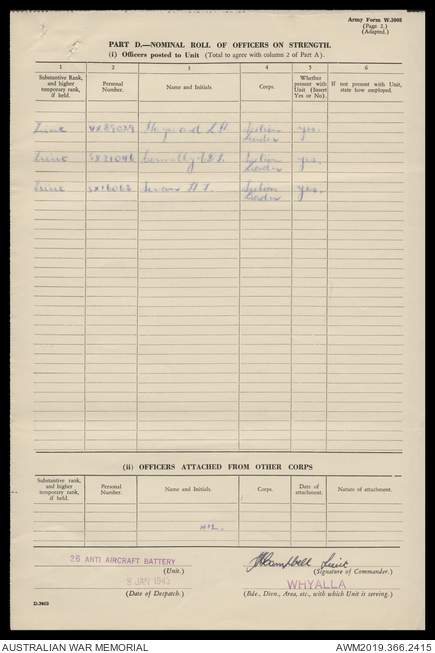 Army Form W.3008
(Page 2.)
(Adapted.)
PART D.—NOMINAL ROLL OF OFFICERS ON STRENGTH.
(i) Officers posted to Unit (Total to agree with column 2 of Part A).
1 2 3 4 5 6
Substantive Rank, and higher temporary rank, if held. Personal Number. Name and Initials. Corps. Whether present with Unit (Insert Yes or No). If not present with Unit, state how employed.
Lieut Section Leader yes.
Lieut Section Leader yes.
Lieut Section Leader yes.
(ii) OFFICERS ATTACHED FROM OTHER CORPS
Substantive rank, and higher temporary rank, if held. Personal Number. Name and Initials. Corps. Date of attachment. Nature of attachment.
NIL.
26 ANTI AIRCRAFT BATTERY Campbell Lieut
(Unit.) (Signature of Commander.)
8 JAN 1943 WHYALLA
(Date of Despatch.) (Bde., Divn., Area, etc., with which Unit is serving.)
D.3653
AUSTRALIAN WAR MEMORIAL AWM2019.366.2415